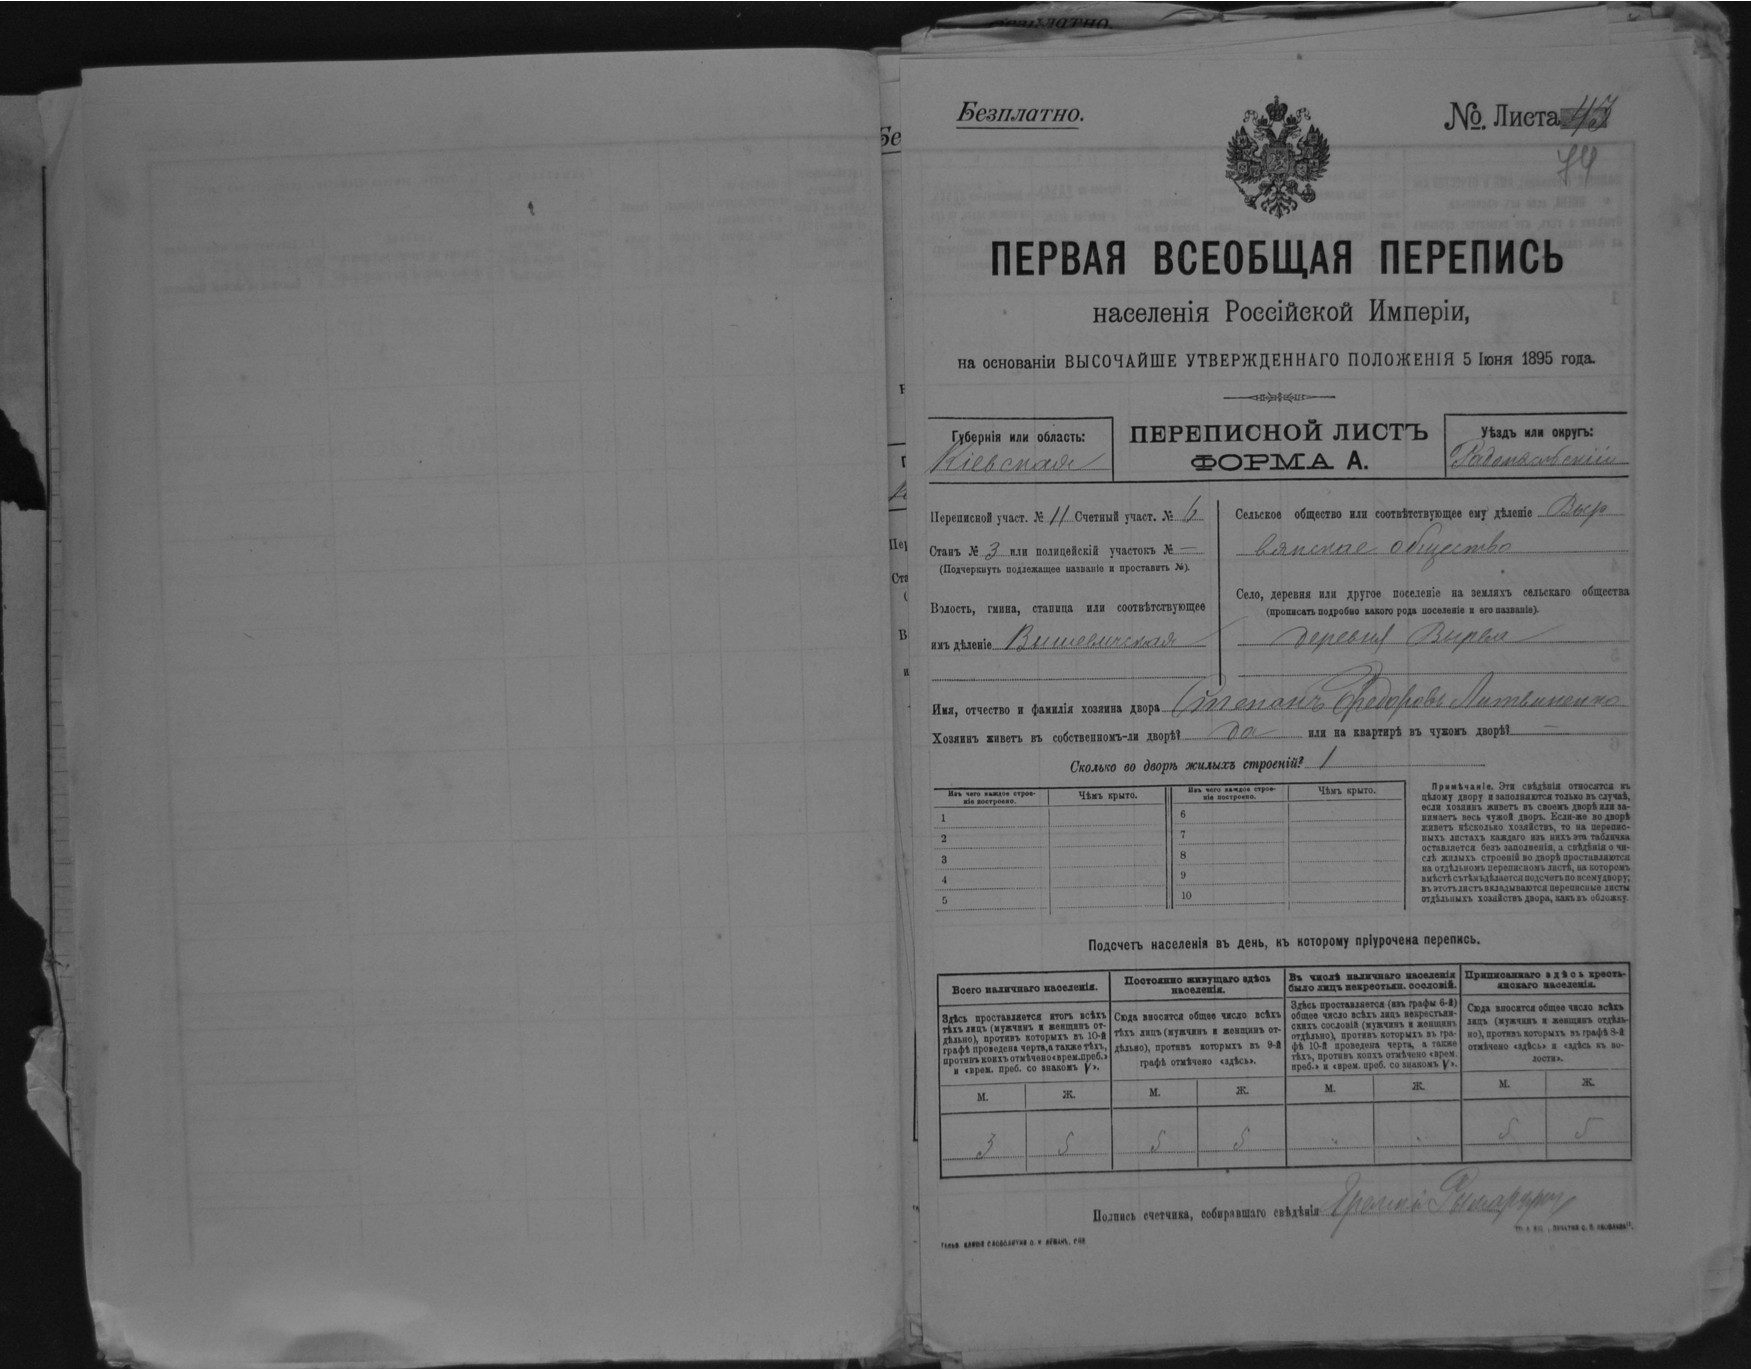 Безплатно.
№. Листа
ПЕРВАЯ ВСЕОБЩАЯ ПЕРЕПИСЬ
населенія Россійской Имперіи,
на основаніи ВЫСОЧАЙШЕ УТВЕРЖДЕННАГО ПОЛОЖЕНІЯ 5 Іюня 1895 года.
Губернія или область:
Кіевская
ПЕРЕПИСНОЙ ЛИСТЪ
ФОРМА А.
Уѣздъ или округъ:
Радомысльскій
Переписной участ. № 11 Счетный участ. № 6
Станъ № 3 или полицейскій участокъ № —
(Подчеркнуть подлежащее названіе и проставить №).
Волость, гмина, станица или соотвѣтствующее
имъ дѣленіе Вышевичская
Сельское общество или соотвѣтствующее ему дѣленіе Выр
вянское общество
Село, деревня или другое поселеніе на земляхъ сельскаго общества
(прописать подробно какого рода поселеніе и его названіе).
деревня Вырва
Имя, отчество и фамилія хозяина двора Степанъ Федоровъ Литвиненко
Хозяинъ живетъ въ собственномъ-ли дворѣ? да или на квартирѣ въ чужомъ дворѣ? —
Сколько во дворѣ жилыхъ строеній? 1
Изъ чего каждое строе-
ніе построено.
Чѣмъ крыто.
Изъ чего каждое строе-
ніе построено.
Чѣмъ крыто.
1
2
3
4
5
6
7
8
9
10
Примѣчаніе. Эти свѣдѣнія относятся къ
цѣлому двору и заполняются только въ случаѣ,
если хозяинъ живетъ въ своемъ дворѣ или за-
нимаетъ весь чужой дворъ. Если-же во дворѣ
живетъ нѣсколько хозяйствъ, то на перепис-
ныхъ листахъ каждаго изъ нихъ эта табличка
оставляется безъ заполненія, а свѣдѣнія о чи-
слѣ жилыхъ строеній во дворѣ проставляются
на отдѣльномъ переписномъ листѣ, на которомъ
вмѣстѣ съ тѣмъ дѣлается подсчетъ по всему двору;
въ этотъ листъ вкладываются переписные листы
отдѣльныхъ хозяйствъ двора, какъ въ обложку.
Подсчетъ населенія въ день, къ которому пріурочена перепись.
Всего наличнаго населенія.
Здѣсь проставляется итогъ всѣхъ
тѣхъ лицъ (мужчинъ и женщинъ от-
дѣльно), противъ которыхъ въ 10-й
графѣ проведена черта, а также тѣхъ,
противъ коихъ отмѣчено «врем. преб.»
и «врем. преб. со знакомъ V».
М. Ж.
3 5
Постоянно живущаго здѣсь
населенія.
Сюда вносится общее число всѣхъ
тѣхъ лицъ (мужчинъ и женщинъ от-
дѣльно), противъ которыхъ въ 9-й
графѣ отмѣчено «здѣсь».
М. Ж.
5 5
Въ числѣ наличнаго населенія
было лицъ некрестьян. сословій.
Здѣсь проставляется (изъ графы 6-й)
общее число всѣхъ лицъ некрестьян-
скихъ сословій (мужчинъ и женщинъ
отдѣльно), противъ которыхъ въ гра-
фѣ 10-й проведена черта, а также
тѣхъ, противъ коихъ отмѣчено «врем.
преб.» и «врем. преб. со знакомъ V».
М. Ж.
Приписаннаго здѣсь кресть-
янскаго населенія.
Сюда вносятся общее число всѣхъ
лицъ (мужчинъ и женщинъ отдѣль-
но), противъ которыхъ въ графѣ 8-й
отмѣчено «здѣсь» и «здѣсь къ во-
лости».
М. Ж.
5 5
Подпись счетчика, собиравшаго свѣдѣнія